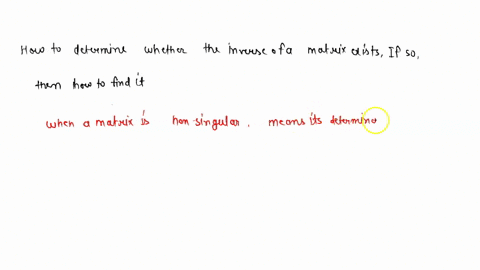 How to determine whether the inverse of a matrix exists, If so,
then how to find it
when a matrix is non-singular, means its determina